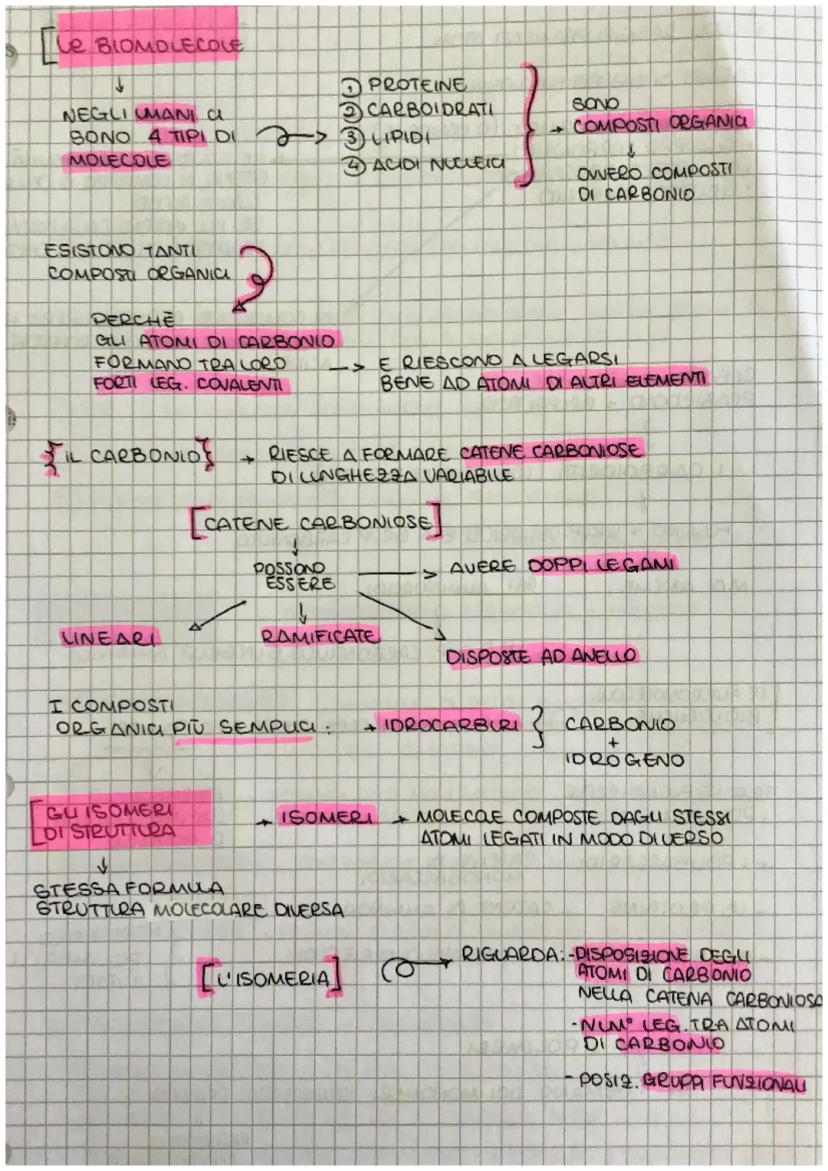 Le BIOMOLECOLE
NEGLI UMANI CI
SONO 4 TIPI DI
MOLECOLE
① PROTEINE
② CARBOIDRATI
③ LIPIDI
④ ACIDI NUCLEICI
SONO
COMPOSTI ORGANICI
OVVERO COMPOSTI
DI CARBONIO
ESISTONO TANTI
COMPOSTI ORGANICI
PERCHÈ
GLI ATOMI DI CARBONIO
FORMANO TRA LORO
FORTI LEG. COVALENTI
E RIESCONO A LEGARSI
BENE AD ATOMI DI ALTRI ELEMENTI
{IL CARBONIO} → RIESCE A FORMARE CATENE CARBONIOSE
DI LUNGHEZZA VARIABILE
[CATENE CARBONIOSE]
POSSONO
ESSERE
AVERE DOPPI LEGAMI
LINEARI
RAMIFICATE
DISPOSTE AD ANELLO
I COMPOSTI
ORGANICI PIÙ SEMPLICI: → IDROCARBURI } CARBONIO
+
IDROGENO
GLI ISOMERI
DI STRUTTURA
→ ISOMERI → MOLECOLE COMPOSTE DAGLI STESSI
ATOMI LEGATI IN MODO DIVERSO
STESSA FORMULA
STRUTTURA MOLECOLARE DIVERSA
[L'ISOMERIA]
RIGUARDA: -DISPOSIZIONE DEGLI
ATOMI DI CARBONIO
NELLA CATENA CARBONIOSA
-NUM° LEG. TRA ATOMI
DI CARBONIO
- POSIZ. GRUPPI FUNZIONALI